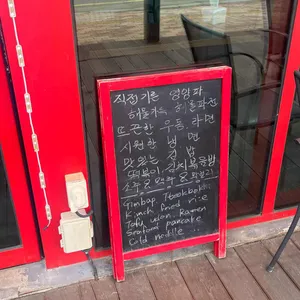 직접 기른 영암파
해물가득 해물파전
뜨끈한 우동 라면
시원한 냉면
맛있는 김밥
떡볶이. 김치볶음밥
소주 & 맥주 & 막걸리
Gimbap Tteokbokki
Kimchi fried rice
Tofu udon Ramen
Seafood pancake
Cold noodle ...